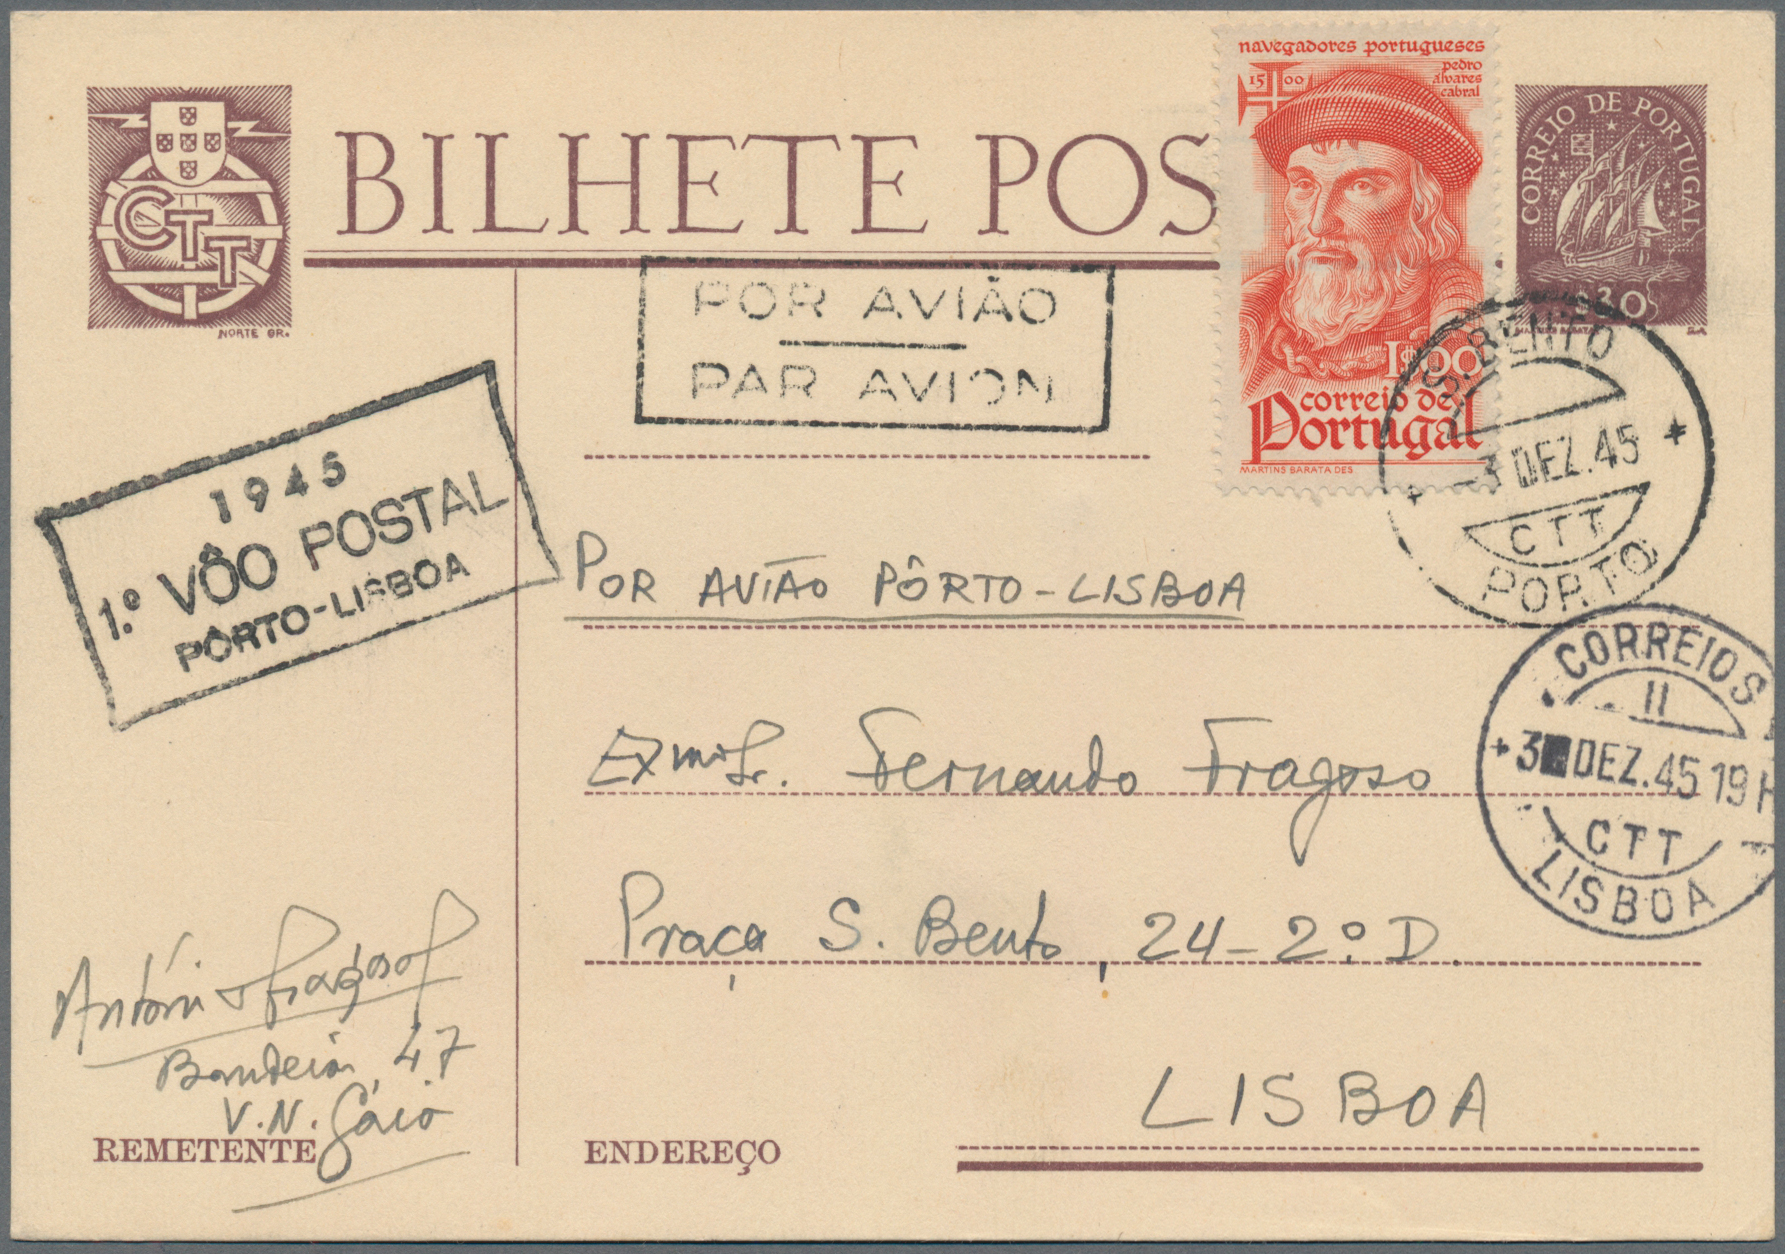 navegadores portugueses
pedro
alvares
cabral
15 00
CORREIO DE PORTUGAL
CTT
BILHETE POS
NORTE GR.
$30
MARTINS BARATA
POR AVIÃO
PAR AVION
1$00
correio de
Portugal
MARTINS BARATA DES
S. BENTO
-3 DEZ.45
CTT
PORTO
1945
1.º VÔO POSTAL
PÔRTO-LISBOA
POR AVIÃO PÔRTO-LISBOA
CORREIOS
II
3 DEZ.45 19 H
CTT
LISBOA
Exmº Sr. Fernando Fragoso
Praça S. Bento, 24-2º D.
LISBOA
António Fragoso
Bandeira, 47
V.N. Gaia
REMETENTE
ENDEREÇO